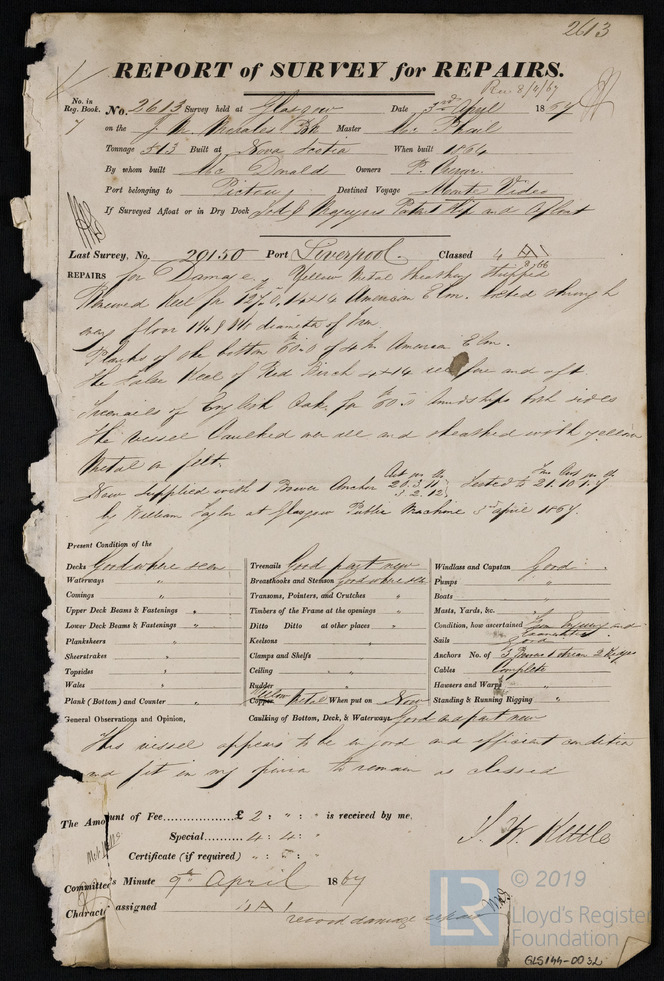 2613
REPORT of SURVEY for REPAIRS.
Rec 8/4/67
No. in Reg. Book. No. 2613 Survey held at Glasgow Date 3rd April 1867
7 on the J. M. Morales Bk Master Mc Phail
Tonnage 513 Built at Nova Scotia When built 1864
By whom built Mc Donald Owners P.
Port belonging to Pictou Destined Voyage Monte Video
If Surveyed Afloat or in Dry Dock Tod & Patent Slip and Afloat
Last Survey, No. 20150 Port Liverpool. Classed 4 A 1
8, 66
REPAIRS for Damage, Yellow Metal Sheathing Stripped
Renewed Keel for 127.0, 14x14 American Elm. bolted through
every floor 1 1/8 & diameter of Iron.
Planks of the bottom 60.0 of 4 in American Elm.
The False Keel of Red Birch 4x14 fore and aft
Treenails of English Oak for 60.0 both sides
The vessel Caulked over all and sheathed with yellow
Metal on felt.
Now supplied with 1 Bower Anchor 20.3.11 Tested to 21.10.1.7
3.2.12
by William Taylor at Glasgow Public Machine 3rd April 1867.
Present Condition of the
Decks Good where seen Treenails Good part new Windlass and Capstan Good
Waterways " Breasthooks and Stemson Good where seen Pumps "
Comings " Transoms, Pointers, and Crutches " Boats "
Upper Deck Beams & Fastenings " Timbers of the Frame at the openings " Masts, Yards, &c. "
Lower Deck Beams & Fastenings " Ditto Ditto at other places " Condition, how ascertained From Enquiry and Examination
Planksheers " Keelsons " Sails Good
Sheerstrakes " Clamps and Shelfs " Anchors No. of 3 Bowers 1 Stream 2 Kedges
Topsides " Ceiling " Cables Complete
Wales " Rudder " Hawsers and Warps "
Plank (Bottom) and Counter " Copper Yellow Metal When put on Now Standing & Running Rigging "
General Observations and Opinion, Caulking of Bottom, Deck, & Waterways Good and part new
This vessel appears to be in good and efficient condition
and fit in my opinion to remain as classed
The Amount of Fee £ 2 : " : " is received by me,
Special 4 : 4 : "
J. W. Kettle
Certificate (if required) " : 5 : "
Committee's Minute 9th April 1867
Character assigned 4 A 1
record damage repairs
© 2019
LR
Lloyd's Register
Foundation
GLS144-0032